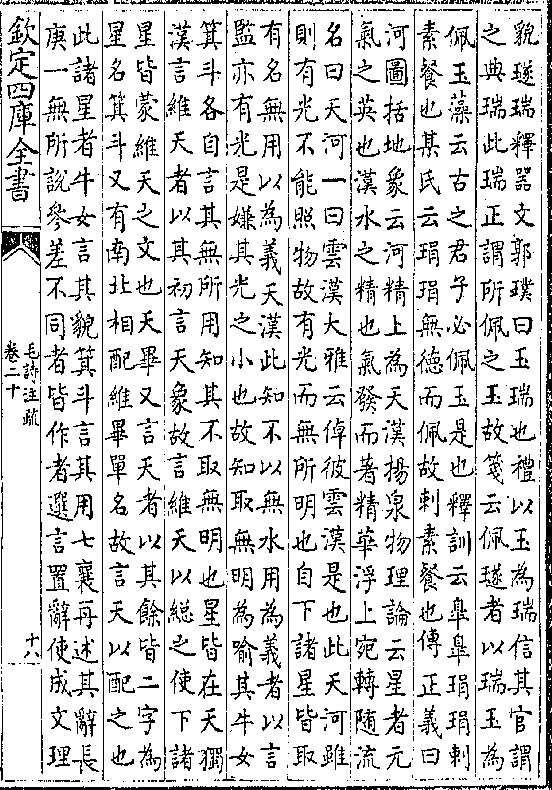 貌璲瑞釋器文郭璞曰玉瑞也禮以玉為瑞信其官謂
之典瑞此瑞正謂所佩之玉故箋云佩璲者以瑞玉為
佩玉藻云古之君子必佩玉是也釋訓云臯臯琄琄刺
素餐也某氏云琄琄無德而佩故刺素餐也傳正義曰
河圖括地象云河精上為天漢揚泉物理論云星者元
氣之英也漢水之精也氣發而著精華浮上宛轉隨流
名曰天河一曰雲漢大雅云倬彼雲漢是也此天河雖
則有光不能照物故有光而無所明也自下諸星皆取
有名無用以為義天漢此知不以無水用為義者以言
監亦有光是嫌其光之小也故知取無明為喻其牛女
箕斗各自言其無所用知其不取無明也星皆在天獨
漢言維天者以其初言天象故言維天以緫之使下諸
星皆蒙維天之文也天畢又言天者以其餘皆二字為
星名箕斗又有南北相配維畢單名故言天以配之也
此諸星者牛女言其貌箕斗言其用七襄再述其辭長
庚一無所說參差不同者皆作者選言置辭使成文理
欽定四庫全書
毛詩注疏
卷二十
十六